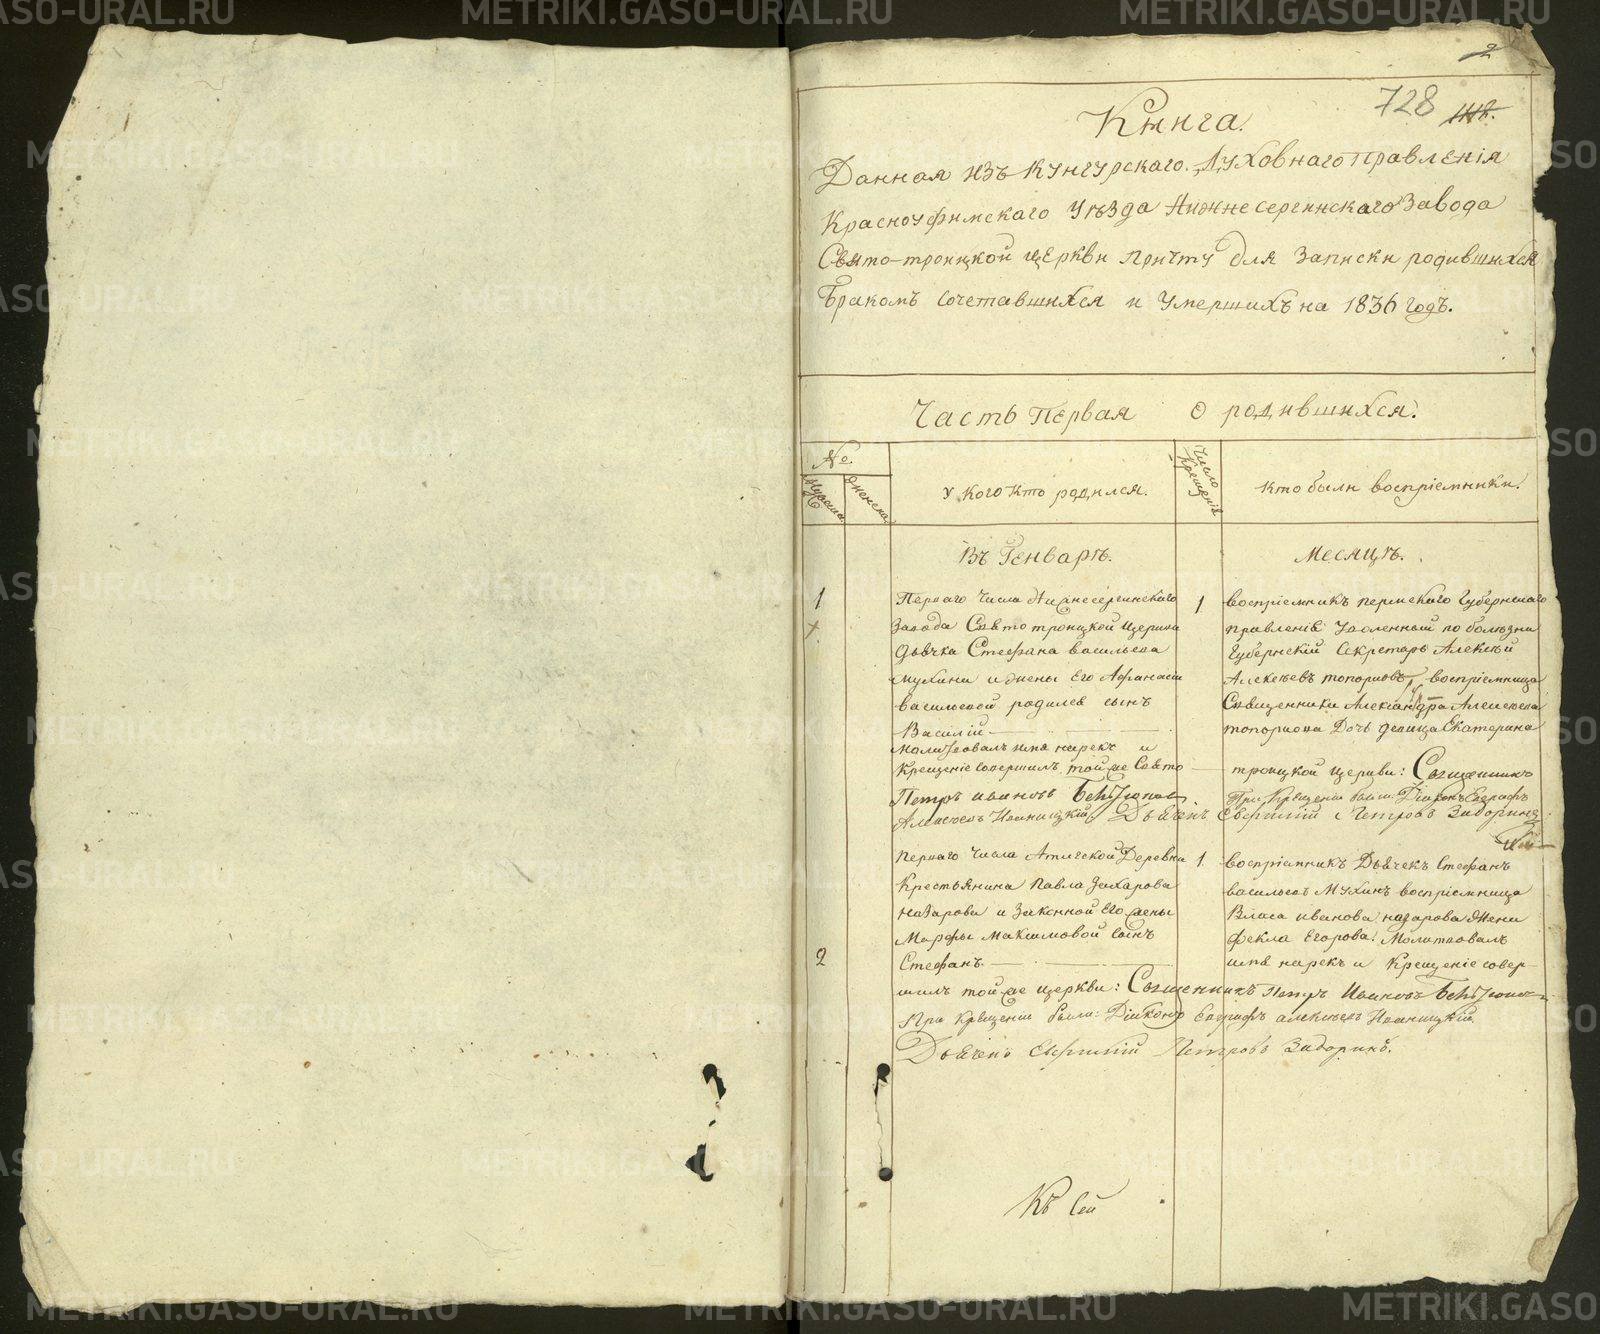 2
728
Книга.
Данная изъ Кунгурскаго Духовнаго правленія
Красноуфимскаго Уѣзда Нижнесергинскаго Завода
Свято-троицкой церкви Причту для Записки родившихся
Бракомъ Сочетавшихся и Умершихъ на 1836 годъ.
Часть Первая О родившихся.
№.
мужеска
женска
У кого кто родился.
Число Крещенія
Кто были воспріемники.
Въ Генварѣ. Месяцѣ.
1
Перваго Числа Нижнесергинскаго
Завода Святотроицкой Церкви
дьячка Стефана васильева
мухина и жены Его Афанасіи
васильевой родился сынъ
Василій
Молитвовалъ имя нарекъ и
Крещеніе совершилъ той же Свято
Петръ ивановъ
Алексѣевъ Дьячекъ
1
воспріемникъ пермскаго Губернскаго
правленія Уволенный по болѣзни
Губернскій Секретарь Алексѣй
Алексѣевъ топорковъ воспріемница
Священника Александра Алексѣева
топоркова Дочь девица Екатерина
троицкой церкви: Священникъ
При Крещеніи были: Діаконъ Евграфъ
Евфимій Петровъ Задоринъ
2
Перваго числа Атигской Деревни
Крестьянина Павла Захарова
назарова и Законной Его жены
Марфы Максимовой Сынъ
Стефанъ.
1.
воспріемникъ Дьячекъ Стефанъ
васильевъ Мухинъ воспріемница
Власа иванова назарова Жена
Фекла Егорова: Молитвовалъ
имя нарекъ и Крещеніе совер-
шилъ той же церкви: Священникъ Петръ Ивановъ
При Крещеніи были: Діаконъ Евграфъ алексѣевъ
Дьячекъ Евфимій Петровъ Задоринъ.
Къ Сей
METRIKI.GASO-URAL.RU